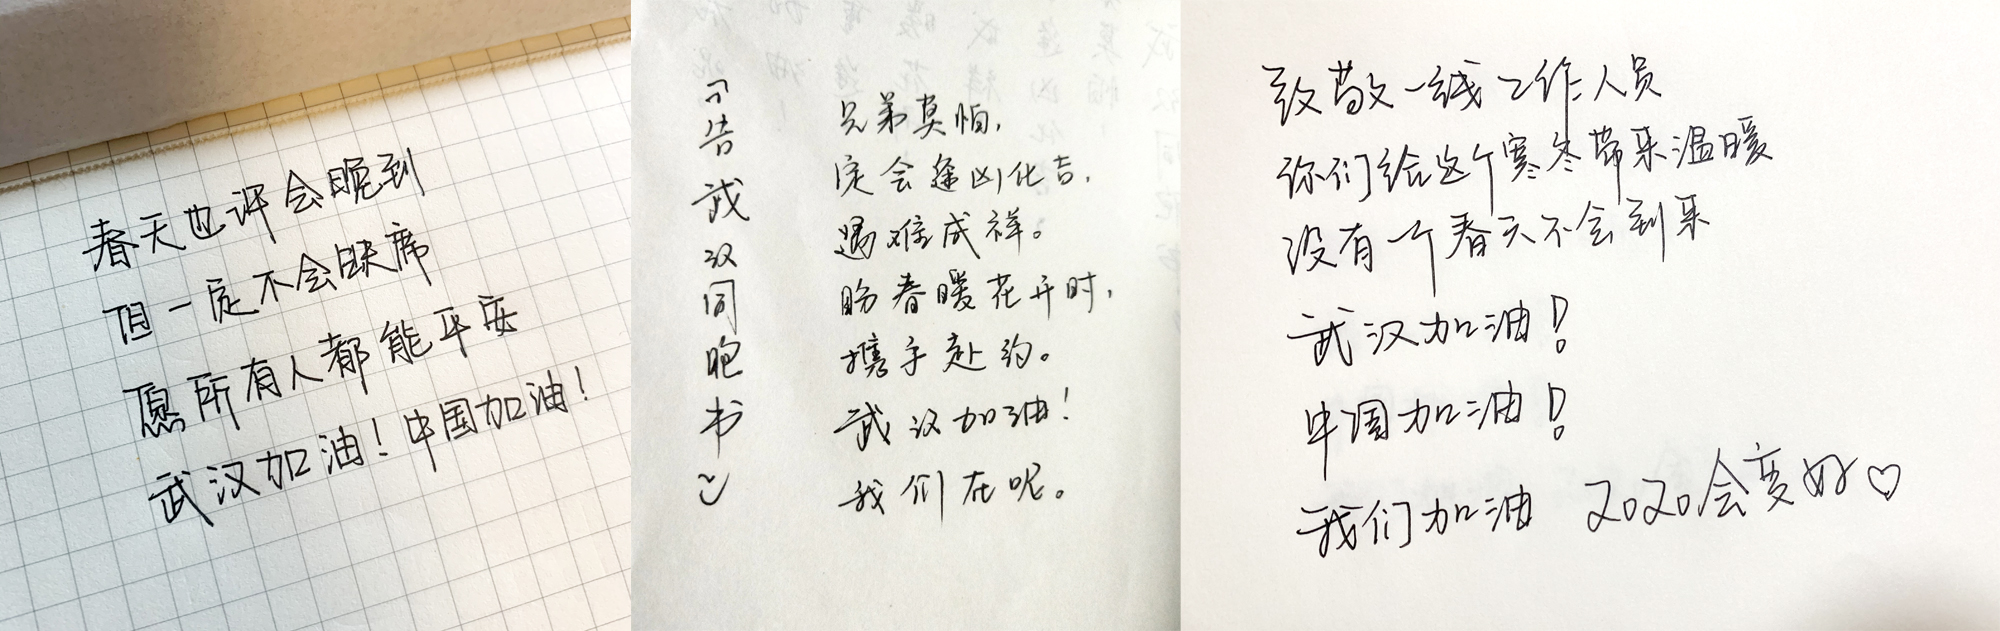 春天也许会晚到
但一定不会缺席
愿所有人都能平安
武汉加油!中国加油!
「告武汉同胞书」
兄弟莫怕,
定会逢凶化吉,
遇难成祥。
盼春暖花开时,
携手赴约。
武汉加油!
我们在呢。
致敬一线工作人员
你们给这个寒冬带来温暖
没有一个春天不会到来
武汉加油!
中国加油!
我们加油 2020会变好♡